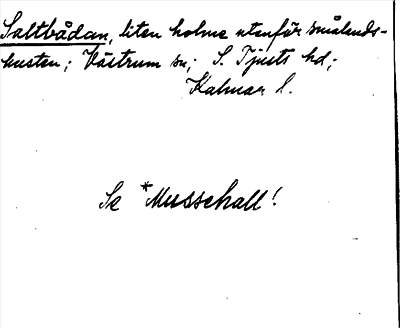 Saltbådan, liten holme utanför smålands-
kusten; Västrum sn; S. Tjusts hd;
Kalmar l.
Se *Mussehall!